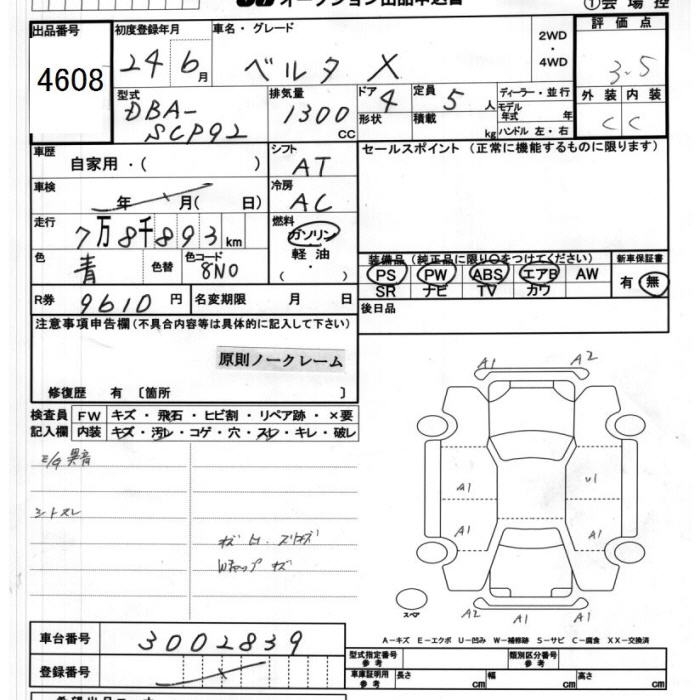 オークション出品申込書
①会場控
出品番号
4608
初度登録年月
24 6月
車名・グレード
ベルタ X
2WD
・
4WD
評価点
3.5
外装 内装
C C
型式
DBA-
SCP92
排気量
1300
CC
ドア 4
形状
定員 5 人
積載 kg
ディーラー・並行
モデル年式 年
ハンドル 左・右
車歴
自家用・( )
シフト
AT
セールスポイント (正常に機能するものに限ります)
車検
年 月( 日)
冷房
AC
走行
7万8千893km
燃料
ガソリン
軽油
( ・ )
色
青
色替
色コード
8N0
装備品 (純正品に限り○をつけてください)
PS PW ABS エアB AW
SR ナビ TV カワ
新車保証書
有・無
R券 9610円
名変期限 月 日
後日品
注意事項申告欄 (不具合内容等は具体的に記入して下さい)
原則ノークレーム
修復歴 有 〔箇所 〕
検査員
記入欄
FW キズ・飛石・ヒビ割・リペア跡・×要
内装 キズ・汚レ・コゲ・穴・スレ・キレ・破レ
E/G 異音
シートスレ
Wキャップ キズ
A1 A2
A1 U1
A1 A1
スペア
A2 A1 A1
A-キズ E-エクボ U-凹み W-補修跡 S-サビ C-腐食 XX-交換済
車台番号 3002839
登録番号
型式指定番号
参考
類別区分番号
参考
車庫証明用
参考
長さ cm
幅 cm
高さ cm